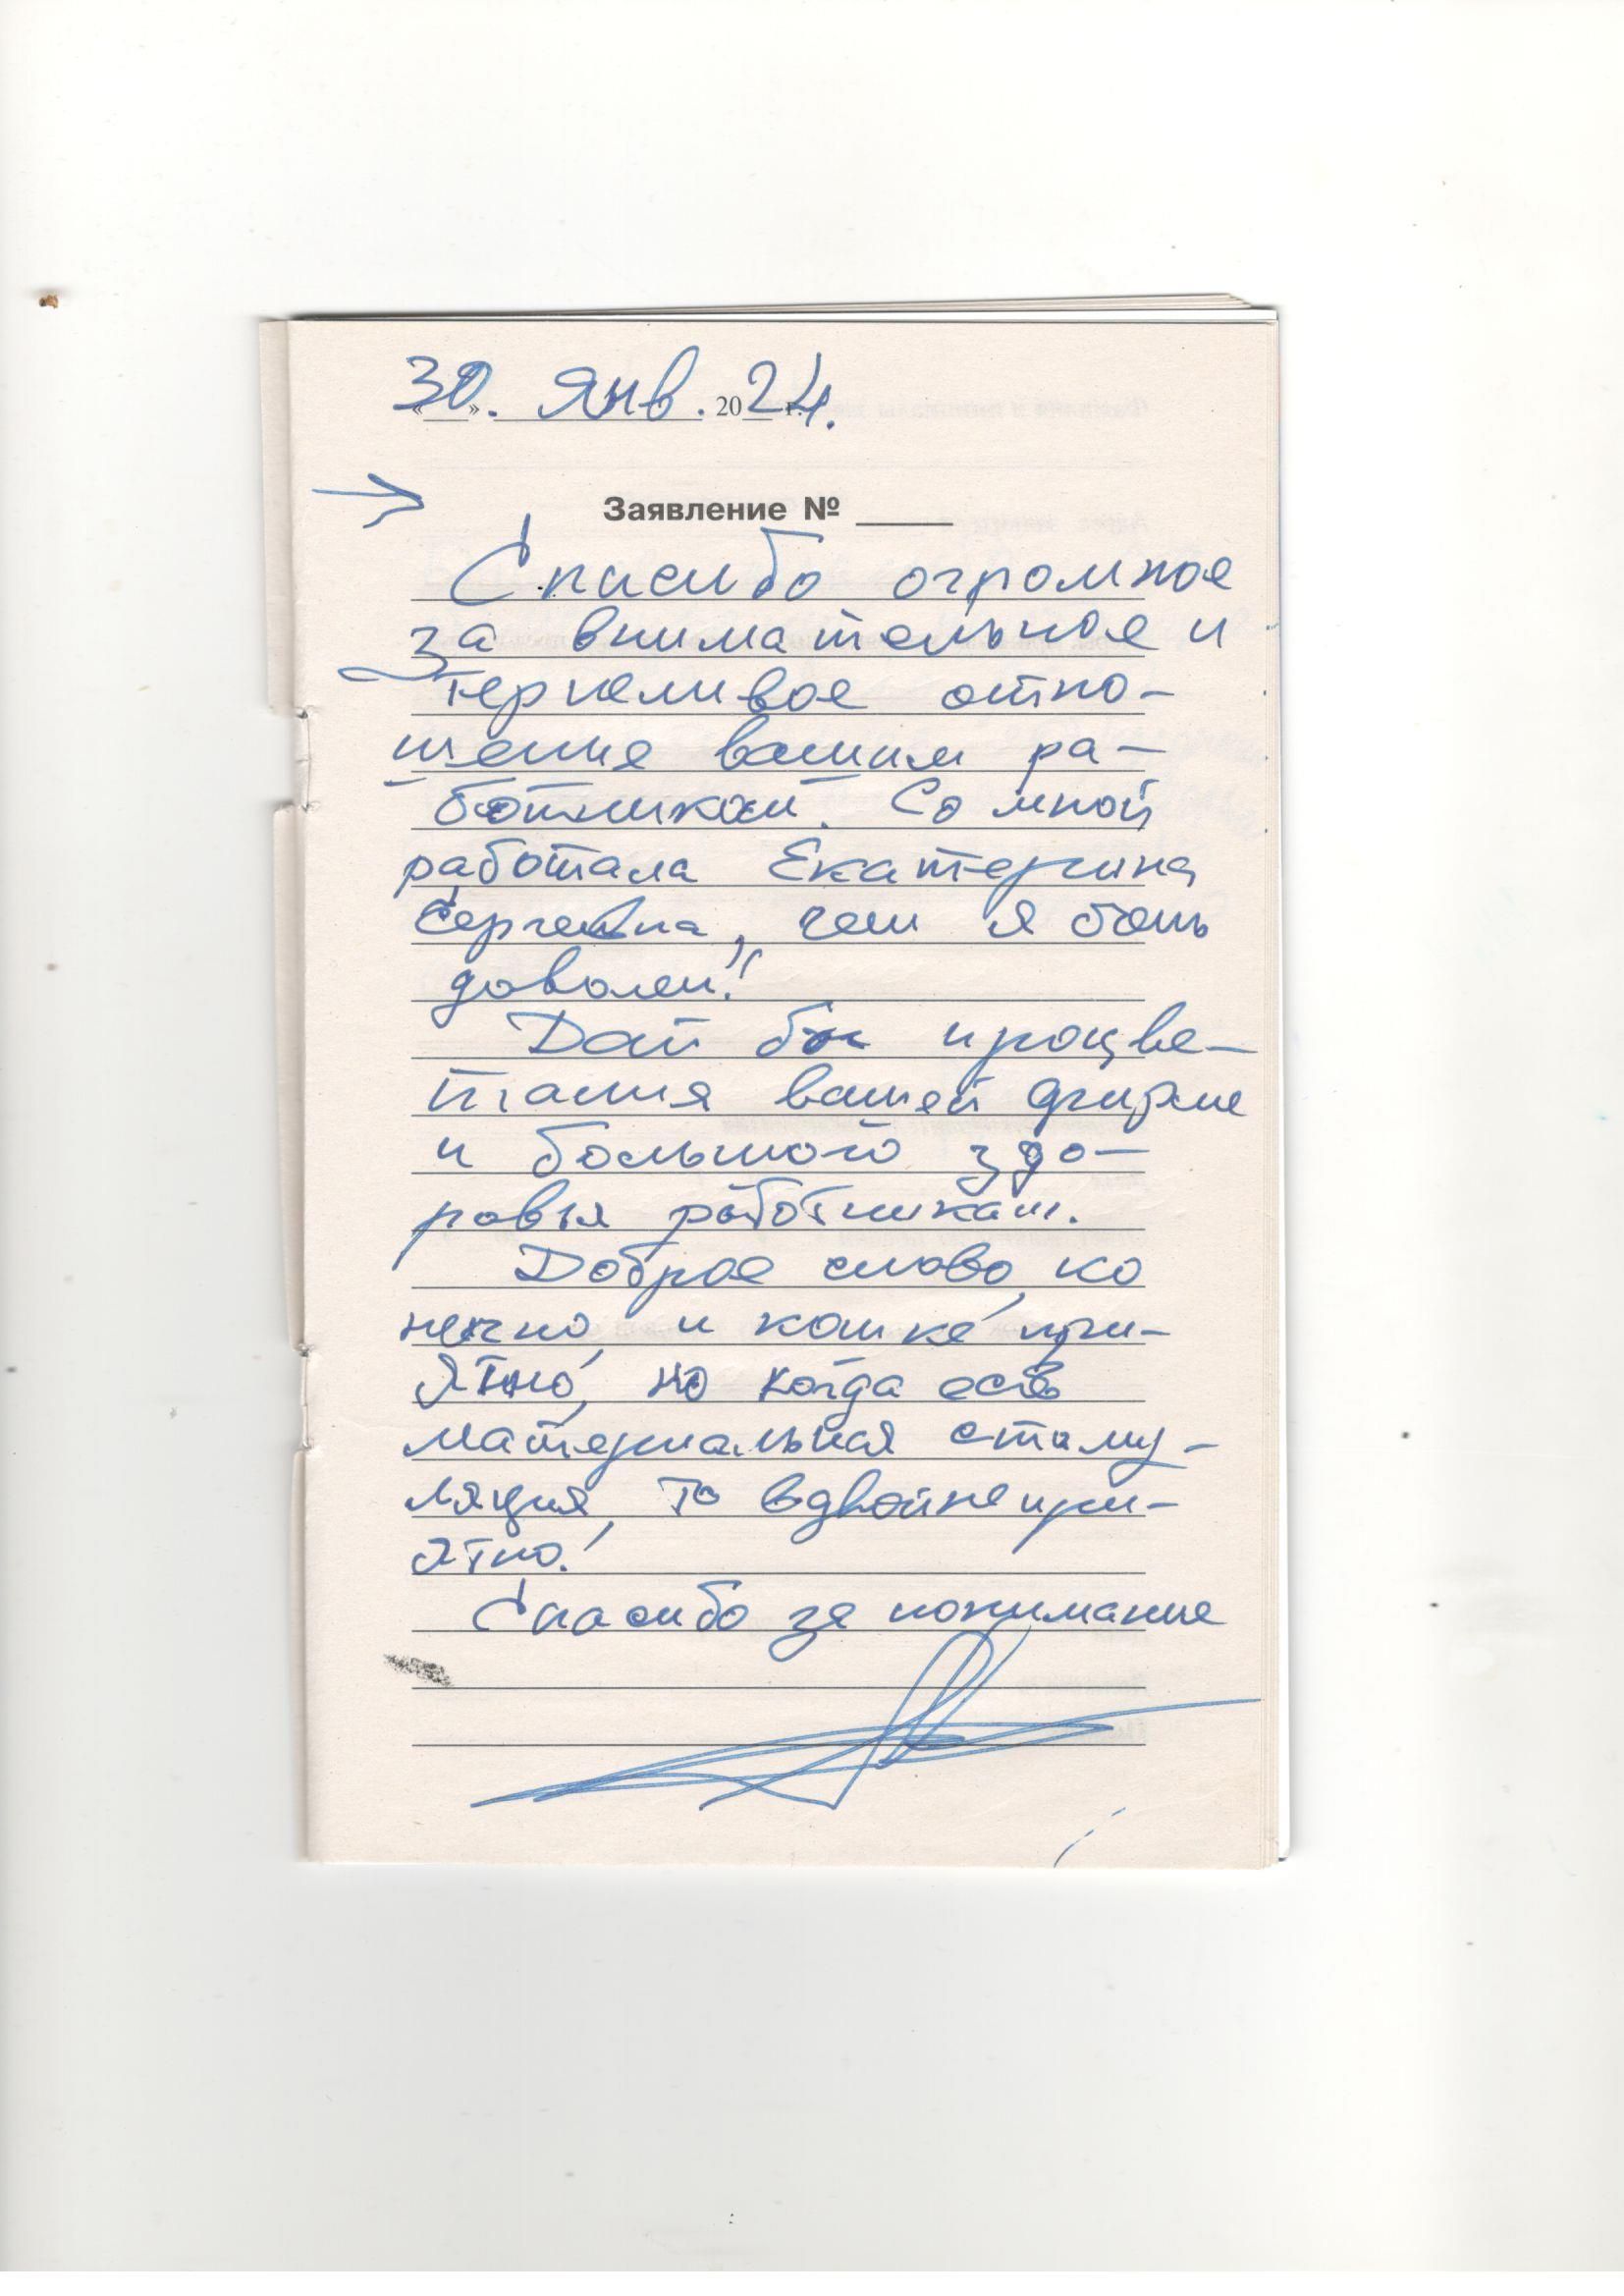 «30». Янв. 2024 г.
→
Заявление № ____
Спасибо огромное
за внимательное и
терпеливое отно-
шение вашим ра-
ботникам. Со мной
работала Екатерина
Сергеевна, чем я
доволен!
Дай процве-
тания вашей фирме
и большого здо-
ровья работникам.
Доброе слово, ко
нечно, и кошке при-
ятно, но когда есть
материальная стиму-
ляция, то вдвойне при-
ятно!
Спасибо за понимание